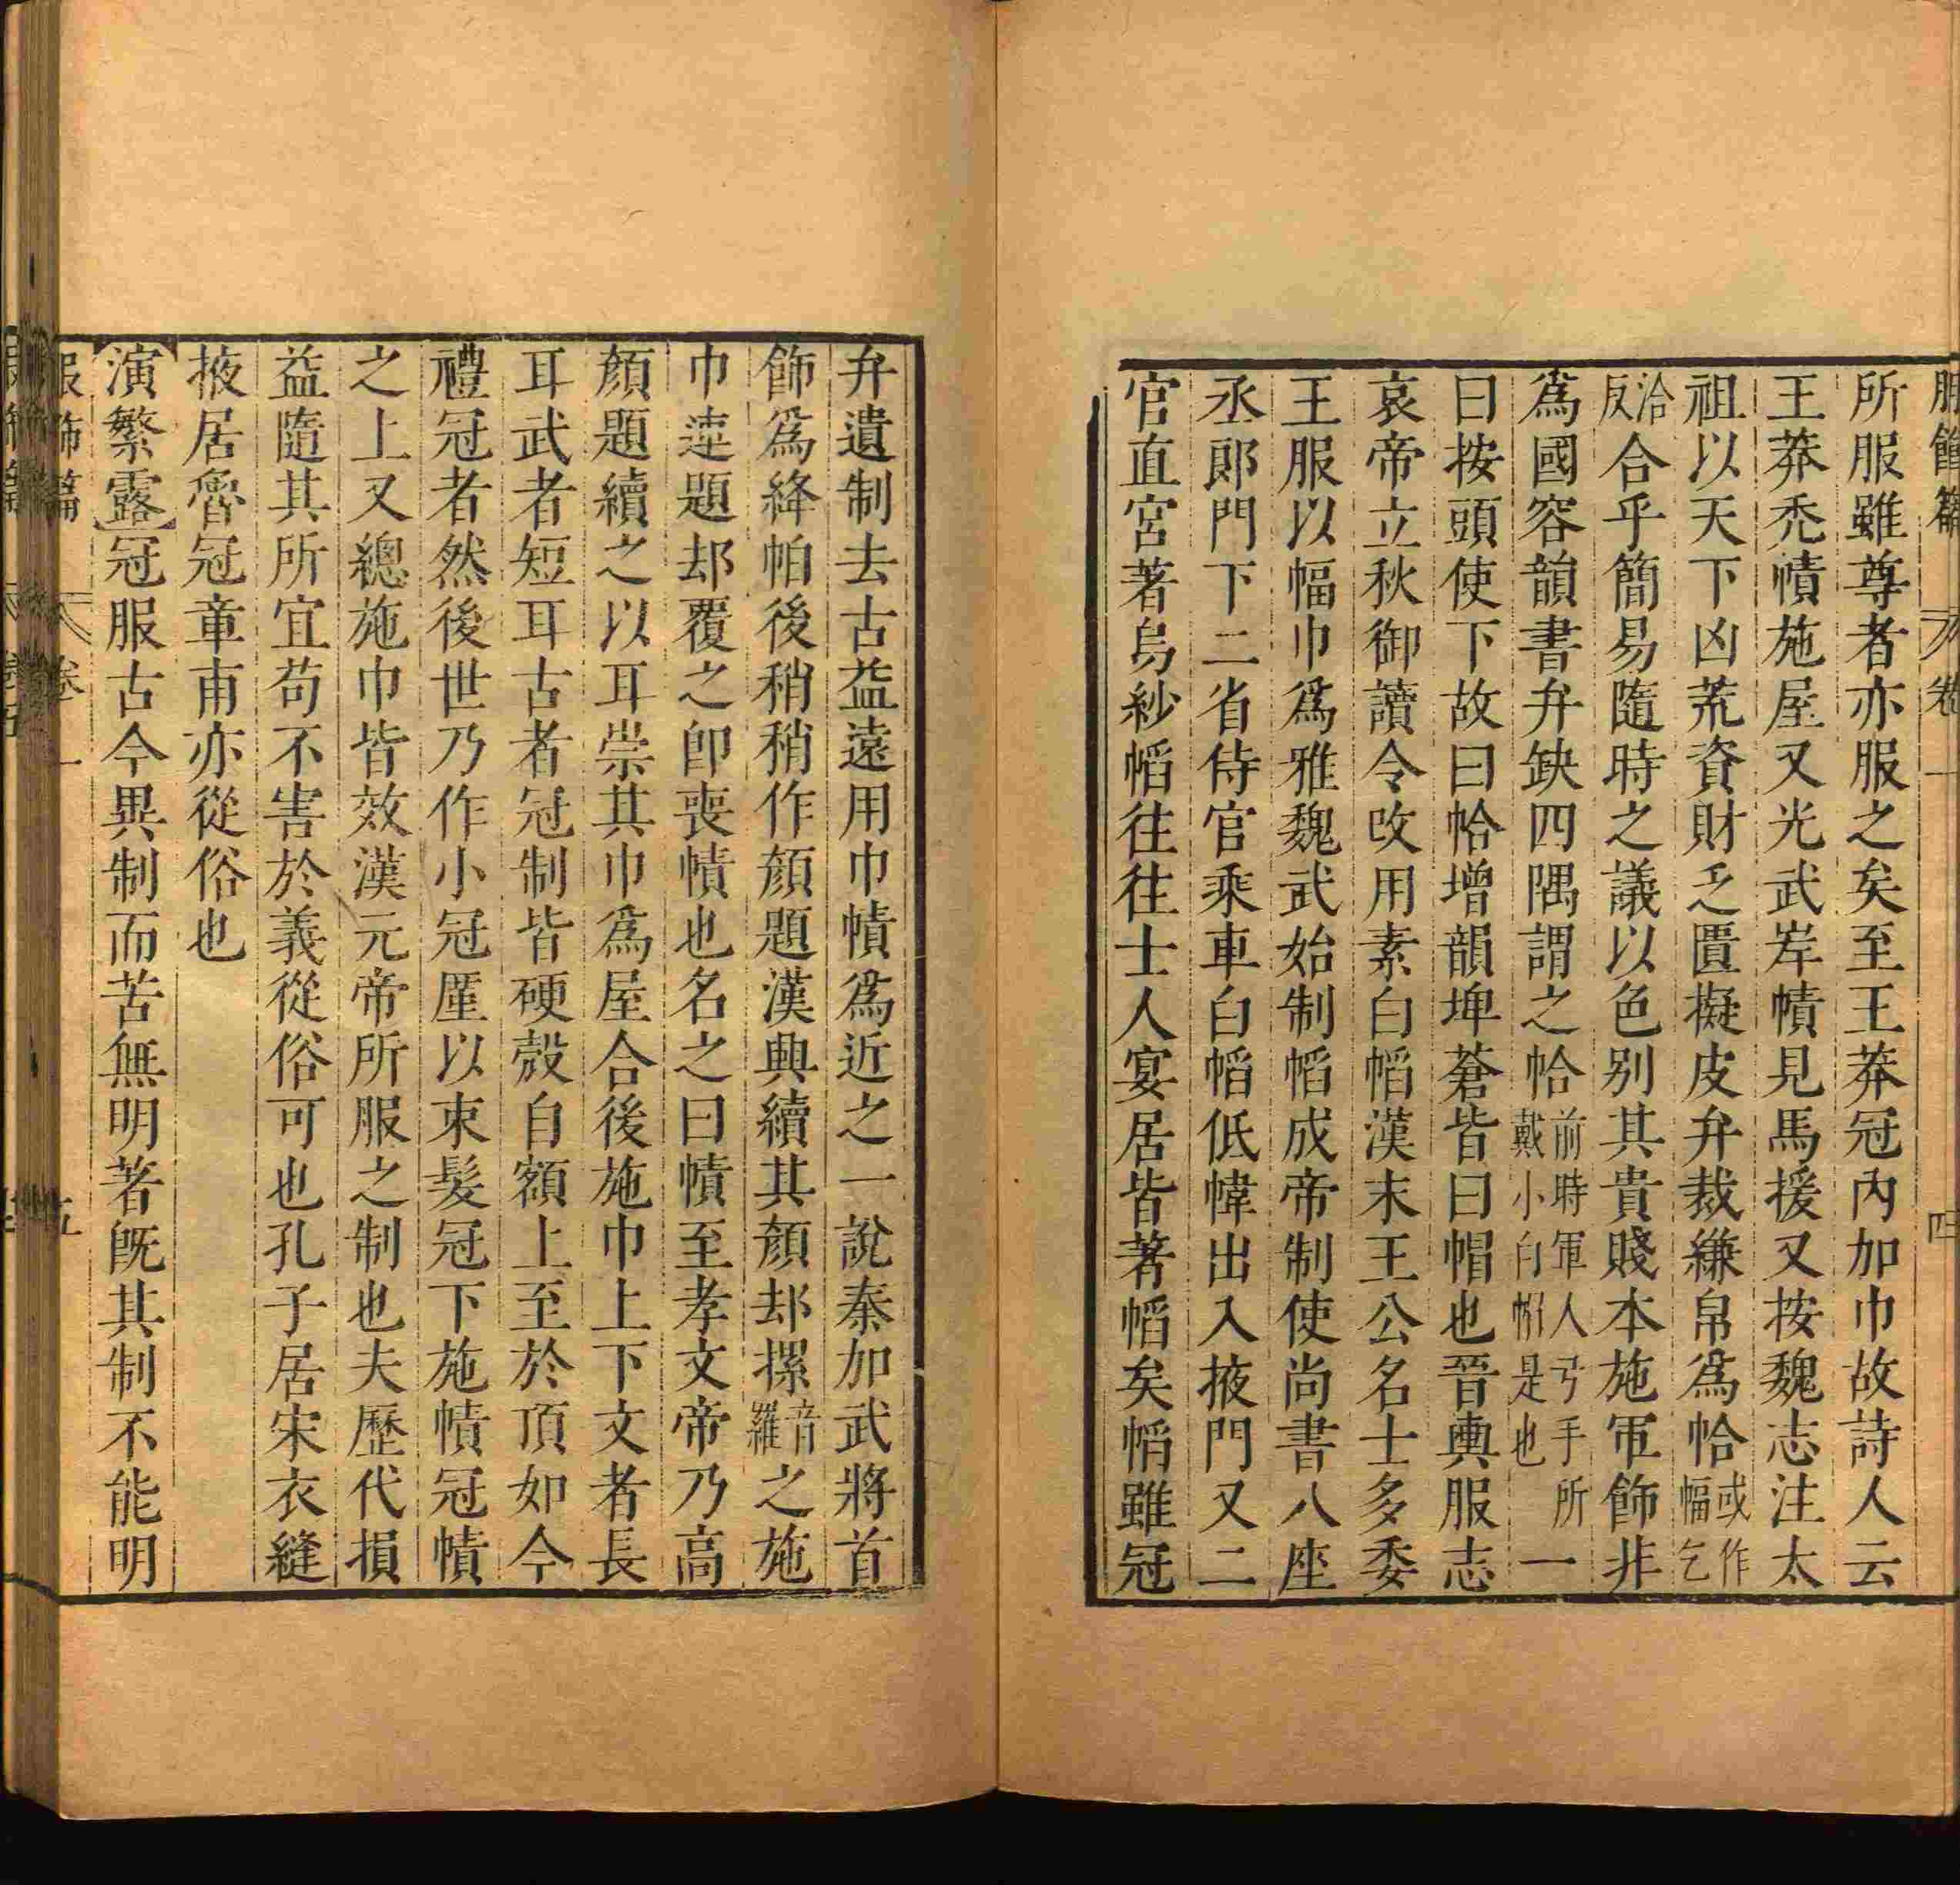 服飾篇 卷一 四
所服雖尊者亦服之矣至王莽冠內加巾故詩人云
王莽禿幘施屋又光武岸幘見馬援又按魏志注太
祖以天下凶荒資財乏匱擬皮弁裁縑帛爲帢或作幍乞
洽反合乎簡易隨時之議以色别其貴賤本施軍飾非
爲國容韻書弁缺四隅謂之帢前時軍人弓手所戴小白帽是也一
曰按頭使下故曰帢增韻埤蒼皆曰帽也晉輿服志
哀帝立秋御讀令改用素白幍漢末王公名士多委
王服以幅巾爲雅魏武始制幍成帝制使尚書八座
丞郎門下二省侍官乘車白幍低幃出入掖門又二
官直宮著烏紗幍往往士人宴居皆著幍矣幍雖冠
弁遺制去古益遠用巾幘爲近之一說秦加武將首
飾爲絳帕後稍稍作顏題漢興續其顏却摞音羅之施
巾連題却覆之卽喪幘也名之曰幘至孝文帝乃高
顏題續之以耳崇其巾爲屋合後施巾上下文者長
耳武者短耳古者冠制皆硬殼自額上至於頂如今
禮冠者然後世乃作小冠厪以束髮冠下施幘冠幘
之上又總施巾皆效漢元帝所服之制也夫歷代損
益隨其所宜苟不害於義從俗可也孔子居宋衣縫
掖居魯冠章甫亦從俗也
演繁露冠服古今異制而苦無明著旣其制不能明
服飾篇 卷一 五